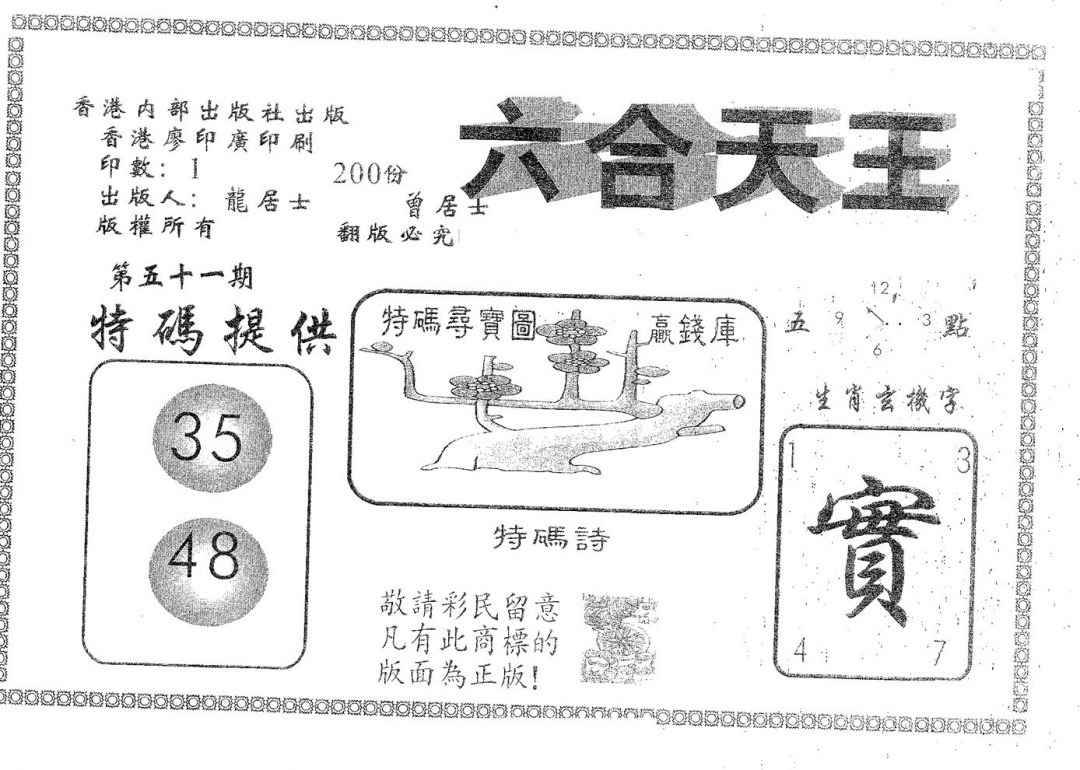 香港内部出版社出版
香港廖印廣印刷
印數：1 200份
出版人：龍居士 曾居士
版權所有 翻版必究
六合天王
第五十一期
特碼提供
35
48
特碼尋寶圖 贏錢庫
特碼詩
敬請彩民留意
凡有此商標的
版面為正版！
五 點
12
9 3
6
生肖玄機字
1 3
實
4 7